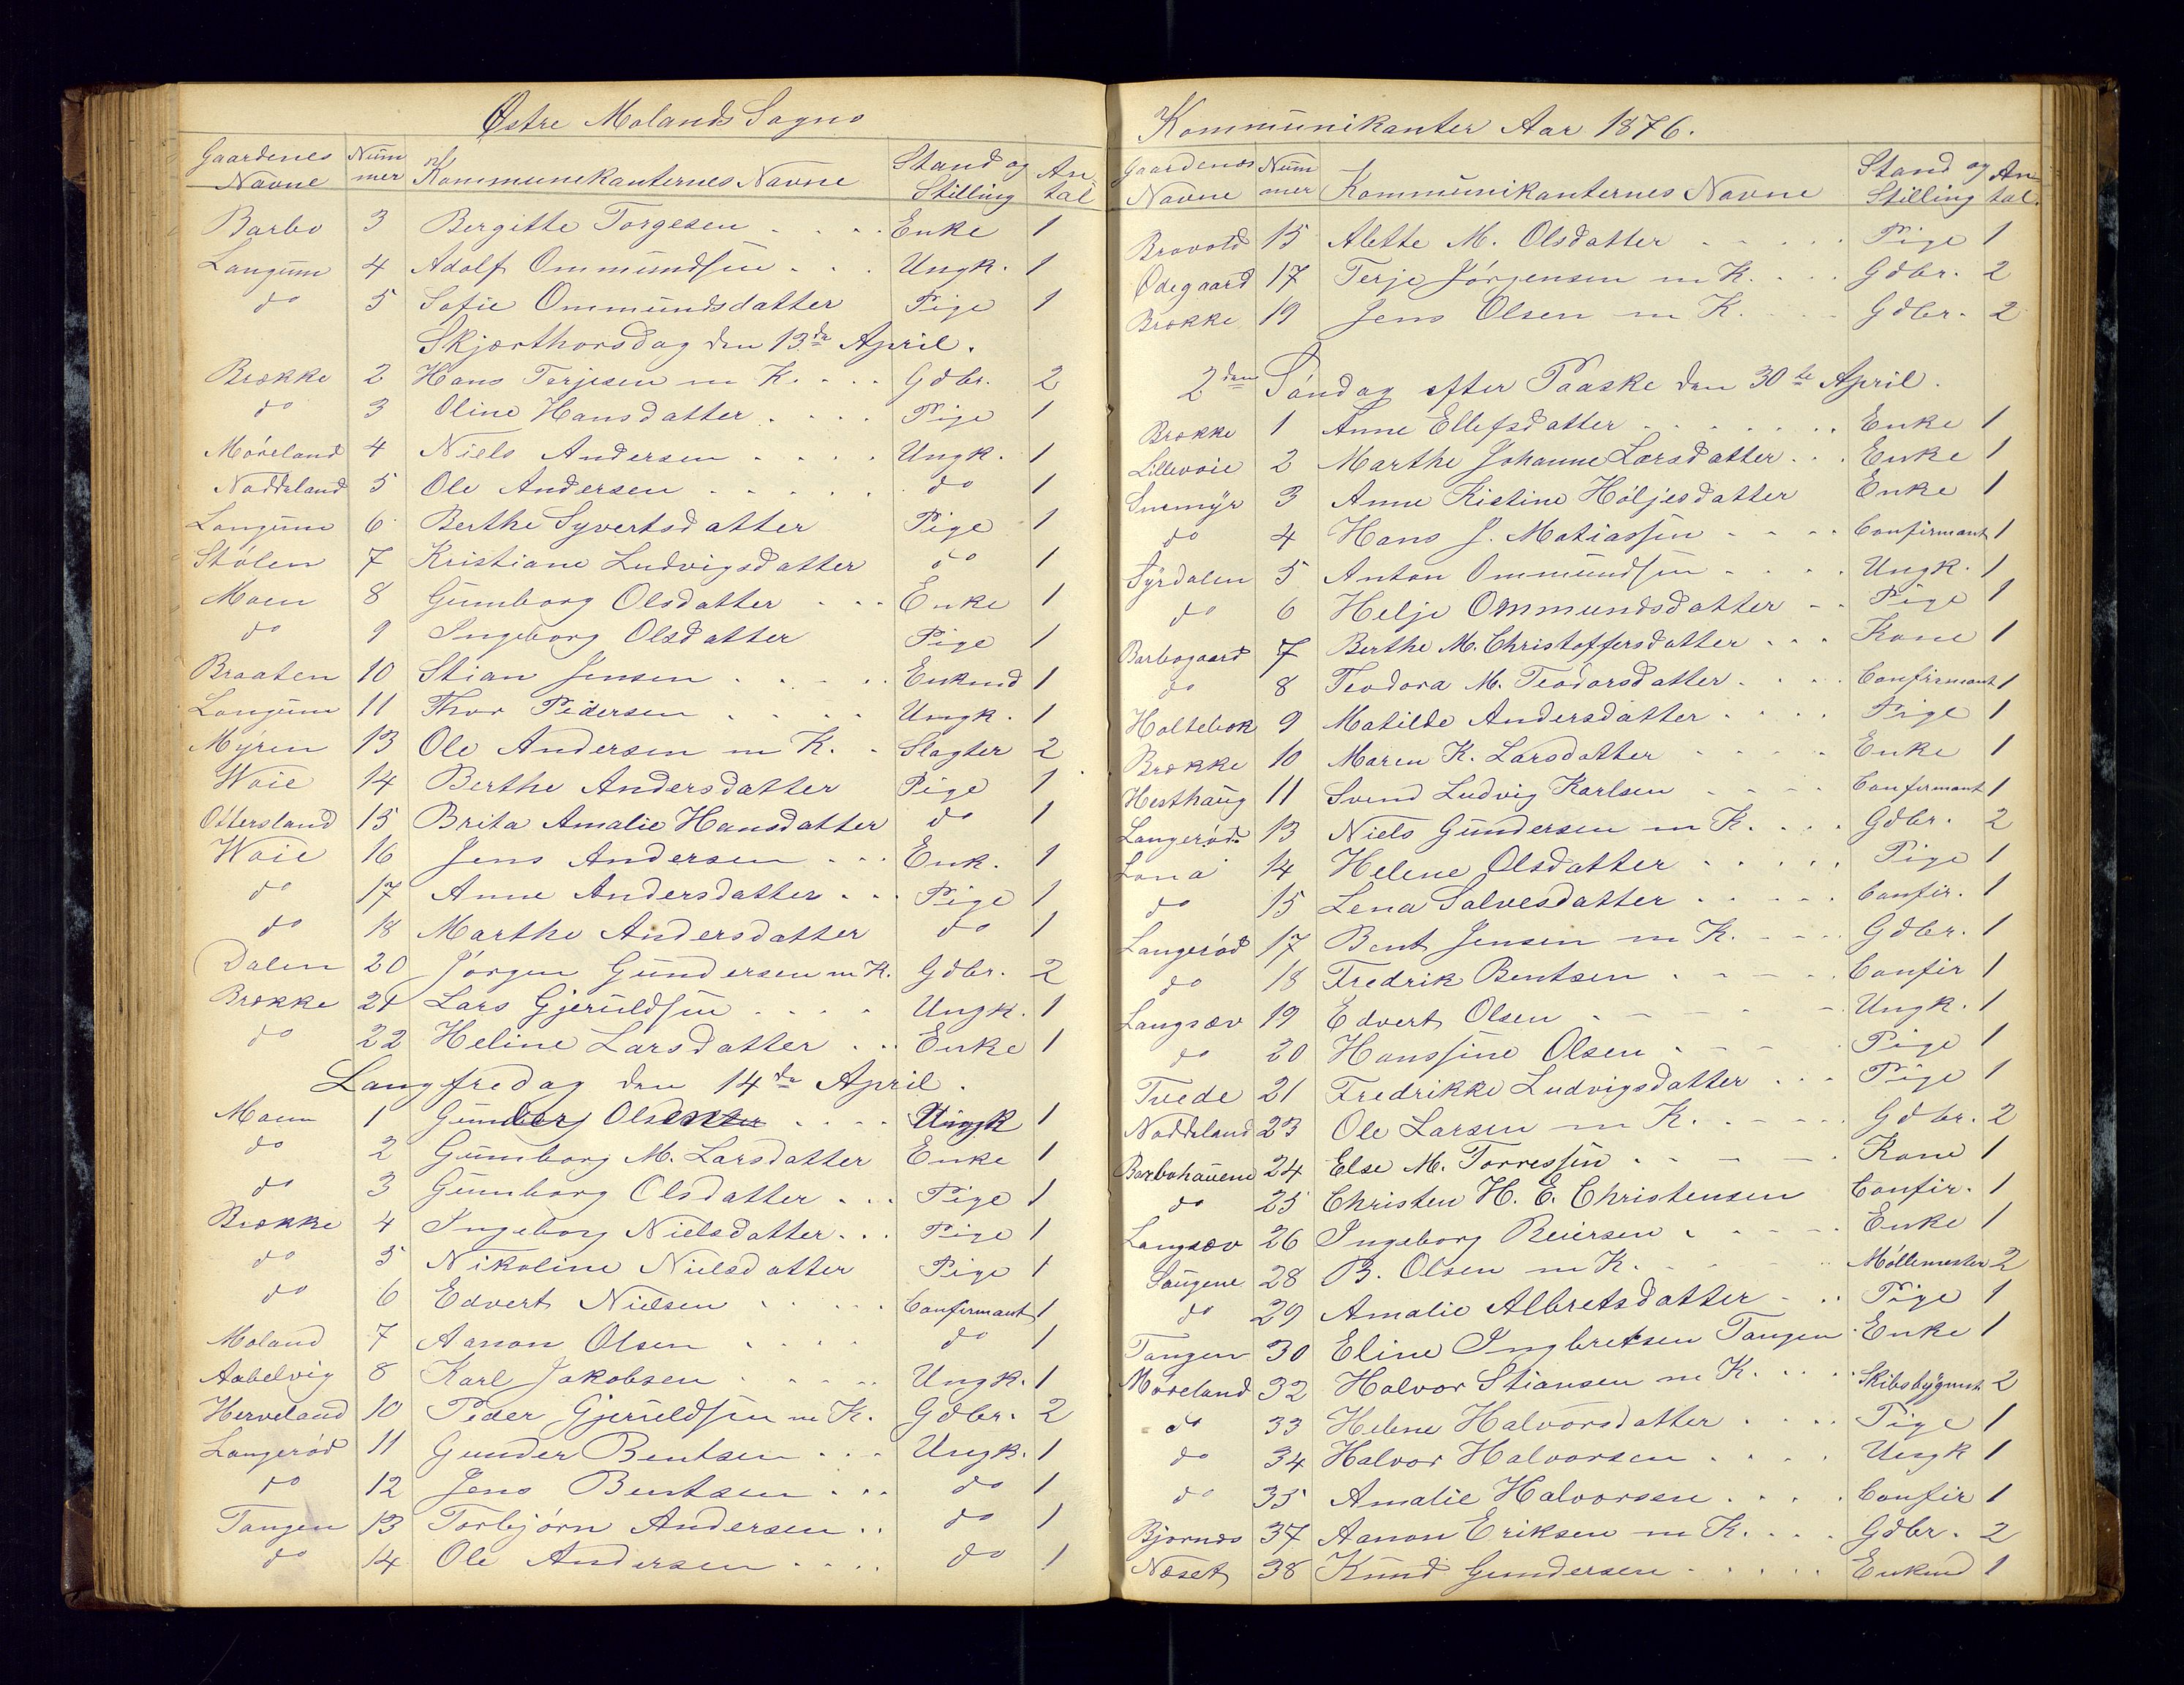 Østre Molands Sogns
Gaardenes Navne Nummer Kommunikanternes Navne Stand og Stilling Antal
Barbo 3 Bergitte Torgesen . . . . Enke 1
Langum 4 Adolf Ommundsen . . . Ungk. 1
do 5 Sofie Ommundsdatter Pige 1
Skjærthorsdag den 13de April.
Brække 2 Hans Terjesen m K. . . . Gdbr. 2
do 3 Oline Hansdatter . . . . Pige 1
Møreland 4 Niels Andersen . . . . Ungk. 1
Noddeland 5 Ole Andersen . . . . . do 1
Langum 6 Berthe Syvertsdatter Pige 1
Stølen 7 Kristiane Ludvigsdatter do 1
Moen 8 Gunborg Olsdatter . . . Enke 1
do 9 Ingeborg Olsdatter Pige 1
Braaten 10 Stian Jensen . . . . . Enkmd 1
Langum 11 Thor Pedersen . . . . Ungk. 1
Myren 13 Ole Andersen m K. . Slagter 2
Waie 14 Berthe Andersdatter Pige 1
Ottersland 15 Brita Amalie Hansdatter do 1
Waie 16 Jens Andersen . . . Enk. 1
do 17 Anne Andersdatter . . Pige 1
do 18 Marthe Andersdatter do 1
Dalen 20 Jørgen Gundersen m K. Gdbr. 2
Brække 21 Lars Gjeruldsen . . . . Ungk. 1
do 22 Heline Larsdatter . . Enke 1
Langfredag den 14de April.
Moen 1 Olsen . . . . Ungk 1
do 2 Gunborg M. Larsdatter Enke 1
do 3 Gunborg Olsdatter . . . Pige 1
Brække 4 Ingeborg Nielsdatter . . . Pige 1
do 5 Nikoline Nielsdatter Pige 1
do 6 Edvert Nielsen . . . . . Confirmant 1
Moland 7 Aanon Olsen . . . . do 1
Aabelvig 8 Karl Jakobsen . . . . . Ungk. 1
Herveland 10 Peder Gjeruldsen m K. Gdbr. 2
Langerød 11 Gunder Bentsen . . . Ungk. 1
do 12 Jens Bentsen . . . do 1
Tangen 13 Torbjørn Andersen . . do 1
do 14 Ole Andersen . . . . do 1
Kommunikanter Aar 1876.
Gaardenes Navne Nummer Kommunikanternes Navne Stand og Stilling Antal.
Brovold 15 Alette M. Olsdatter . . . . . Pige 1
Ødegaard 17 Terje Jørgensen m K. . . . Gdbr. 2
Brække 19 Jens Olsen m K. . . . Gdbr. 2
2den Søndag efter Paaske den 30te April.
Brække 1 Anne Ellefsdatter . . . . . . . Enke 1
Lillevaie 2 Marthe Johanne Larsdatter . . . Enke 1
Snemyr 3 Anne Kistine Høljesdatter Enke 1
do 4 Hans J. Matiassen . . . . Confirmant 1
Syrdalen 5 Anton Ommundsen . . . . Ungk. 1
do 6 Helje Ommundsdatter . . Pige 1
Barbogaard 7 Berthe M. Christoffersdatter . . . Kone 1
do 8 Teodora M. Teodorsdatter . . . . Confirmant 1
Holtebæk 9 Matilde Andersdatter . . . . Pige 1
Brække 10 Maren K. Larsdatter . . . . . Enke 1
Hesthaug 11 Svend Ludvig Karlsen . . . . Confirmant 1
Langerød 13 Niels Gundersen m K. . . . . Gdbr. 2
Lona 14 Helene Olsdatter . . . . . Pige 1
do 15 Lena Salvesdatter . . . . . Confir. 1
Langerød 17 Bent Jensen m K. . . . Gdbr. 1
do 18 Fredrik Bentsen . . . . . Confir 1
Langsæv 19 Edvert Olsen . . . . . . Ungk. 1
do 20 Hanssine Olsen . . . . . Pige 1
Tvede 21 Fredrikke Ludvigsdatter . . . Pige 1
Noddeland 23 Ole Larsen m K. . . . . Gdbr. 2
Barbohauene 24 Else M. Torressen . . . . . Kone 1
do 25 Christen H. E. Christensen Confir. 1
Langsæv 26 Ingeborg Reiersen . . . . . Enke 1
Saugene 28 B. Olsen m K. . . . . . Møllemester 2
do 29 Amalie Albretsdatter . . . Pige 1
Tangen 30 Eline Ingbretsen Tangen . Enke 1
Møreland 32 Halvor Stiansen m K. . . . . Skibsbygmst 2
do 33 Helene Halvorsdatter . . . . Pige 1
do 34 Halvor Halvorsen . . . . Ungk 1
do 35 Amalie Halvorsen . . . . Confir 1
Bjørnes 37 Aanon Eriksen m K. . . . Gdbr. 2
Næset 38 Knud Gundersen . . . . . Enkmd 1